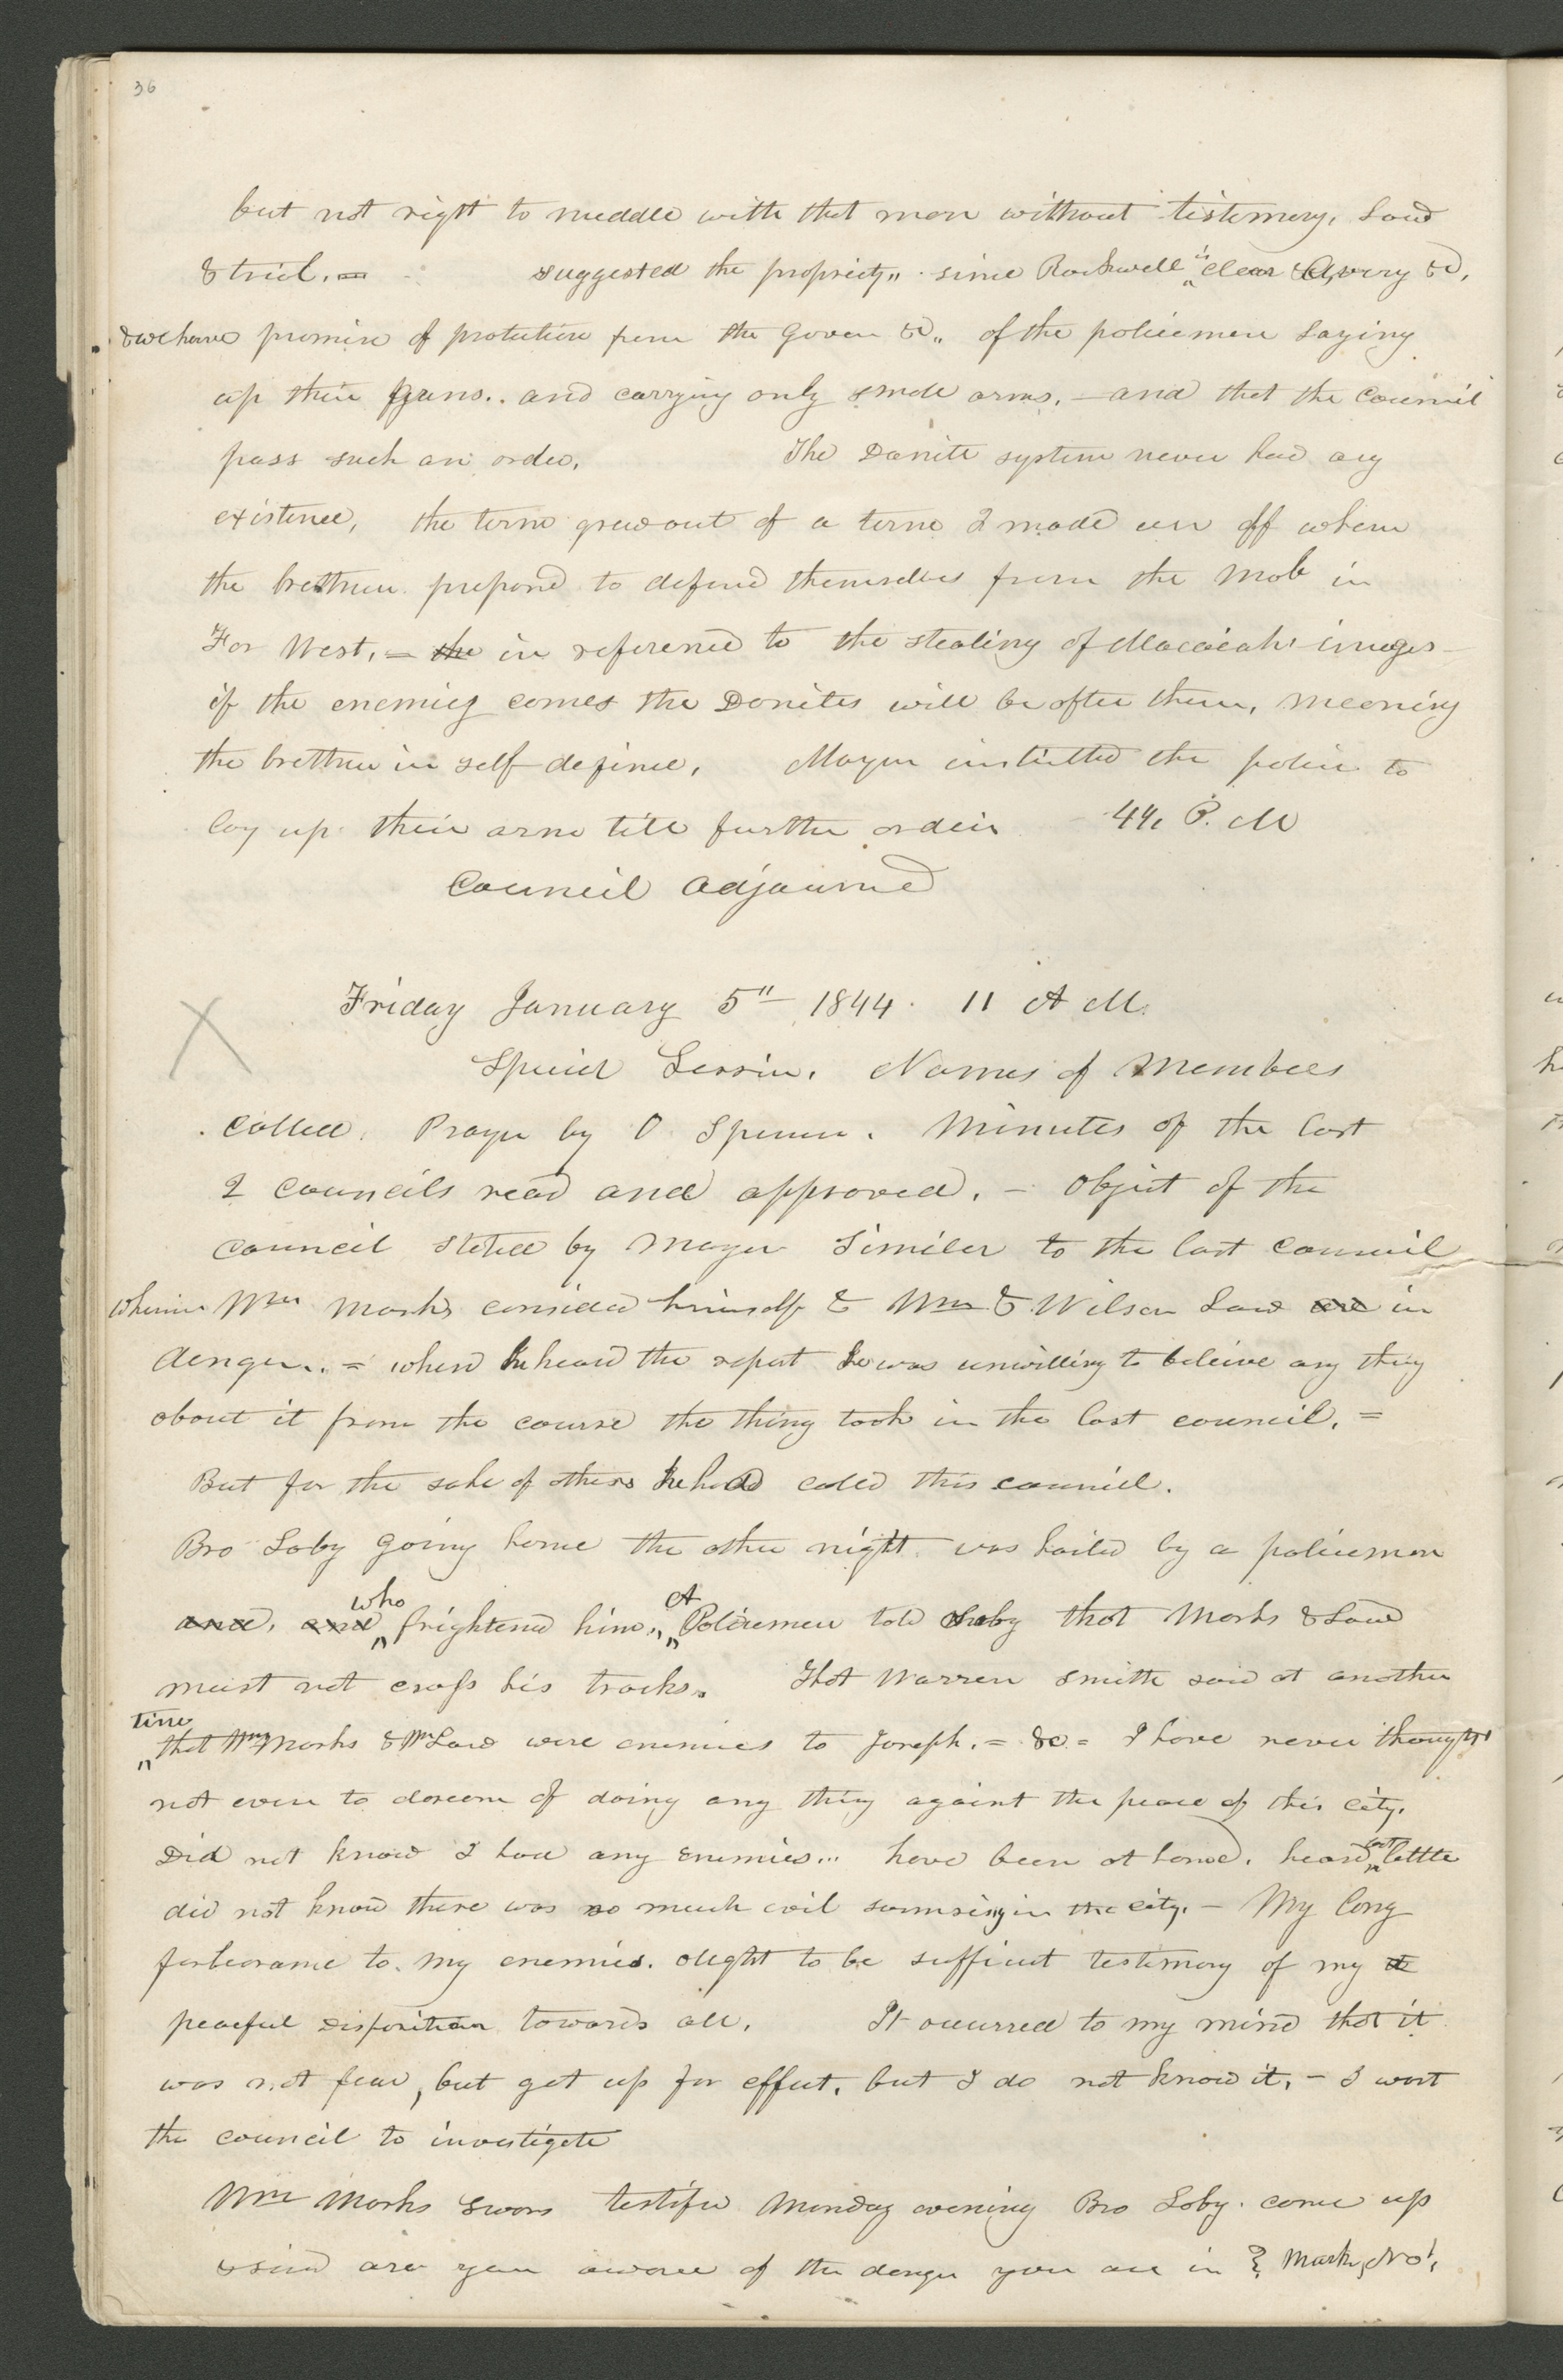 36
but not right to meddle with that man without testimony, Law
& trial. = suggested the propriety,, since Rockwell is clear & Avery &c,
& we have promise of protection from the Gover &c,, of the policemen laying
up their guns.. and carrying only small arms. — and that the council
pass such an order, The Danite system never had any
existence, the term grew out of a term I made use off when
the brethren prepared to defend themselves from the mob in
Far West, = the in reference to the stealing of Macaiah's images —
if the enemies comes the Danites will be after them, meening
the brethren in self defince, Mayor instructed the police to
lay up their arms till further orders P. M
Council adjourned
Friday January 5" 1844. 11 A M.
Special Session. Names of Members
called. Prayer by O Spencer. Minutes of the last
2 councils read and approved. — object of the
council stated by Mayor similar to the last council
wherin Wm Marks considered himself & Wm & Wilson Law are in
danger.. = when he heard the report he was unwilling to beleive any thing
about it from the course the thing took in the last council. =
But for the sake of others he had called this council.
Bro Soby going home the other night was hailed by a policeman
who A
and, and frightened him,, Policemen told Soby that Marks & Law
must not cross his tracks. That Warren Smith said at another
time
that Wm Marks & Wm Law were enemies to Joseph. = &c = I have never thought
not even to dream of doing any thing againt the peace of this city.
Did not know I had any enemies... have been at home. heard but little
did not know there was so much evil surmising in the city. — My long
forbearance to my enemies. ought to be sufficient testimony of my
peaceful disposition towards all, It occurred to my mind that it
was not fear, but got up for effect, but I do not know it, — I want
the council to investigate
Wm Marks Sworn testified Monday evening Bro Soby. came up
& said are you aware of the danger you are in? Marks, No!,